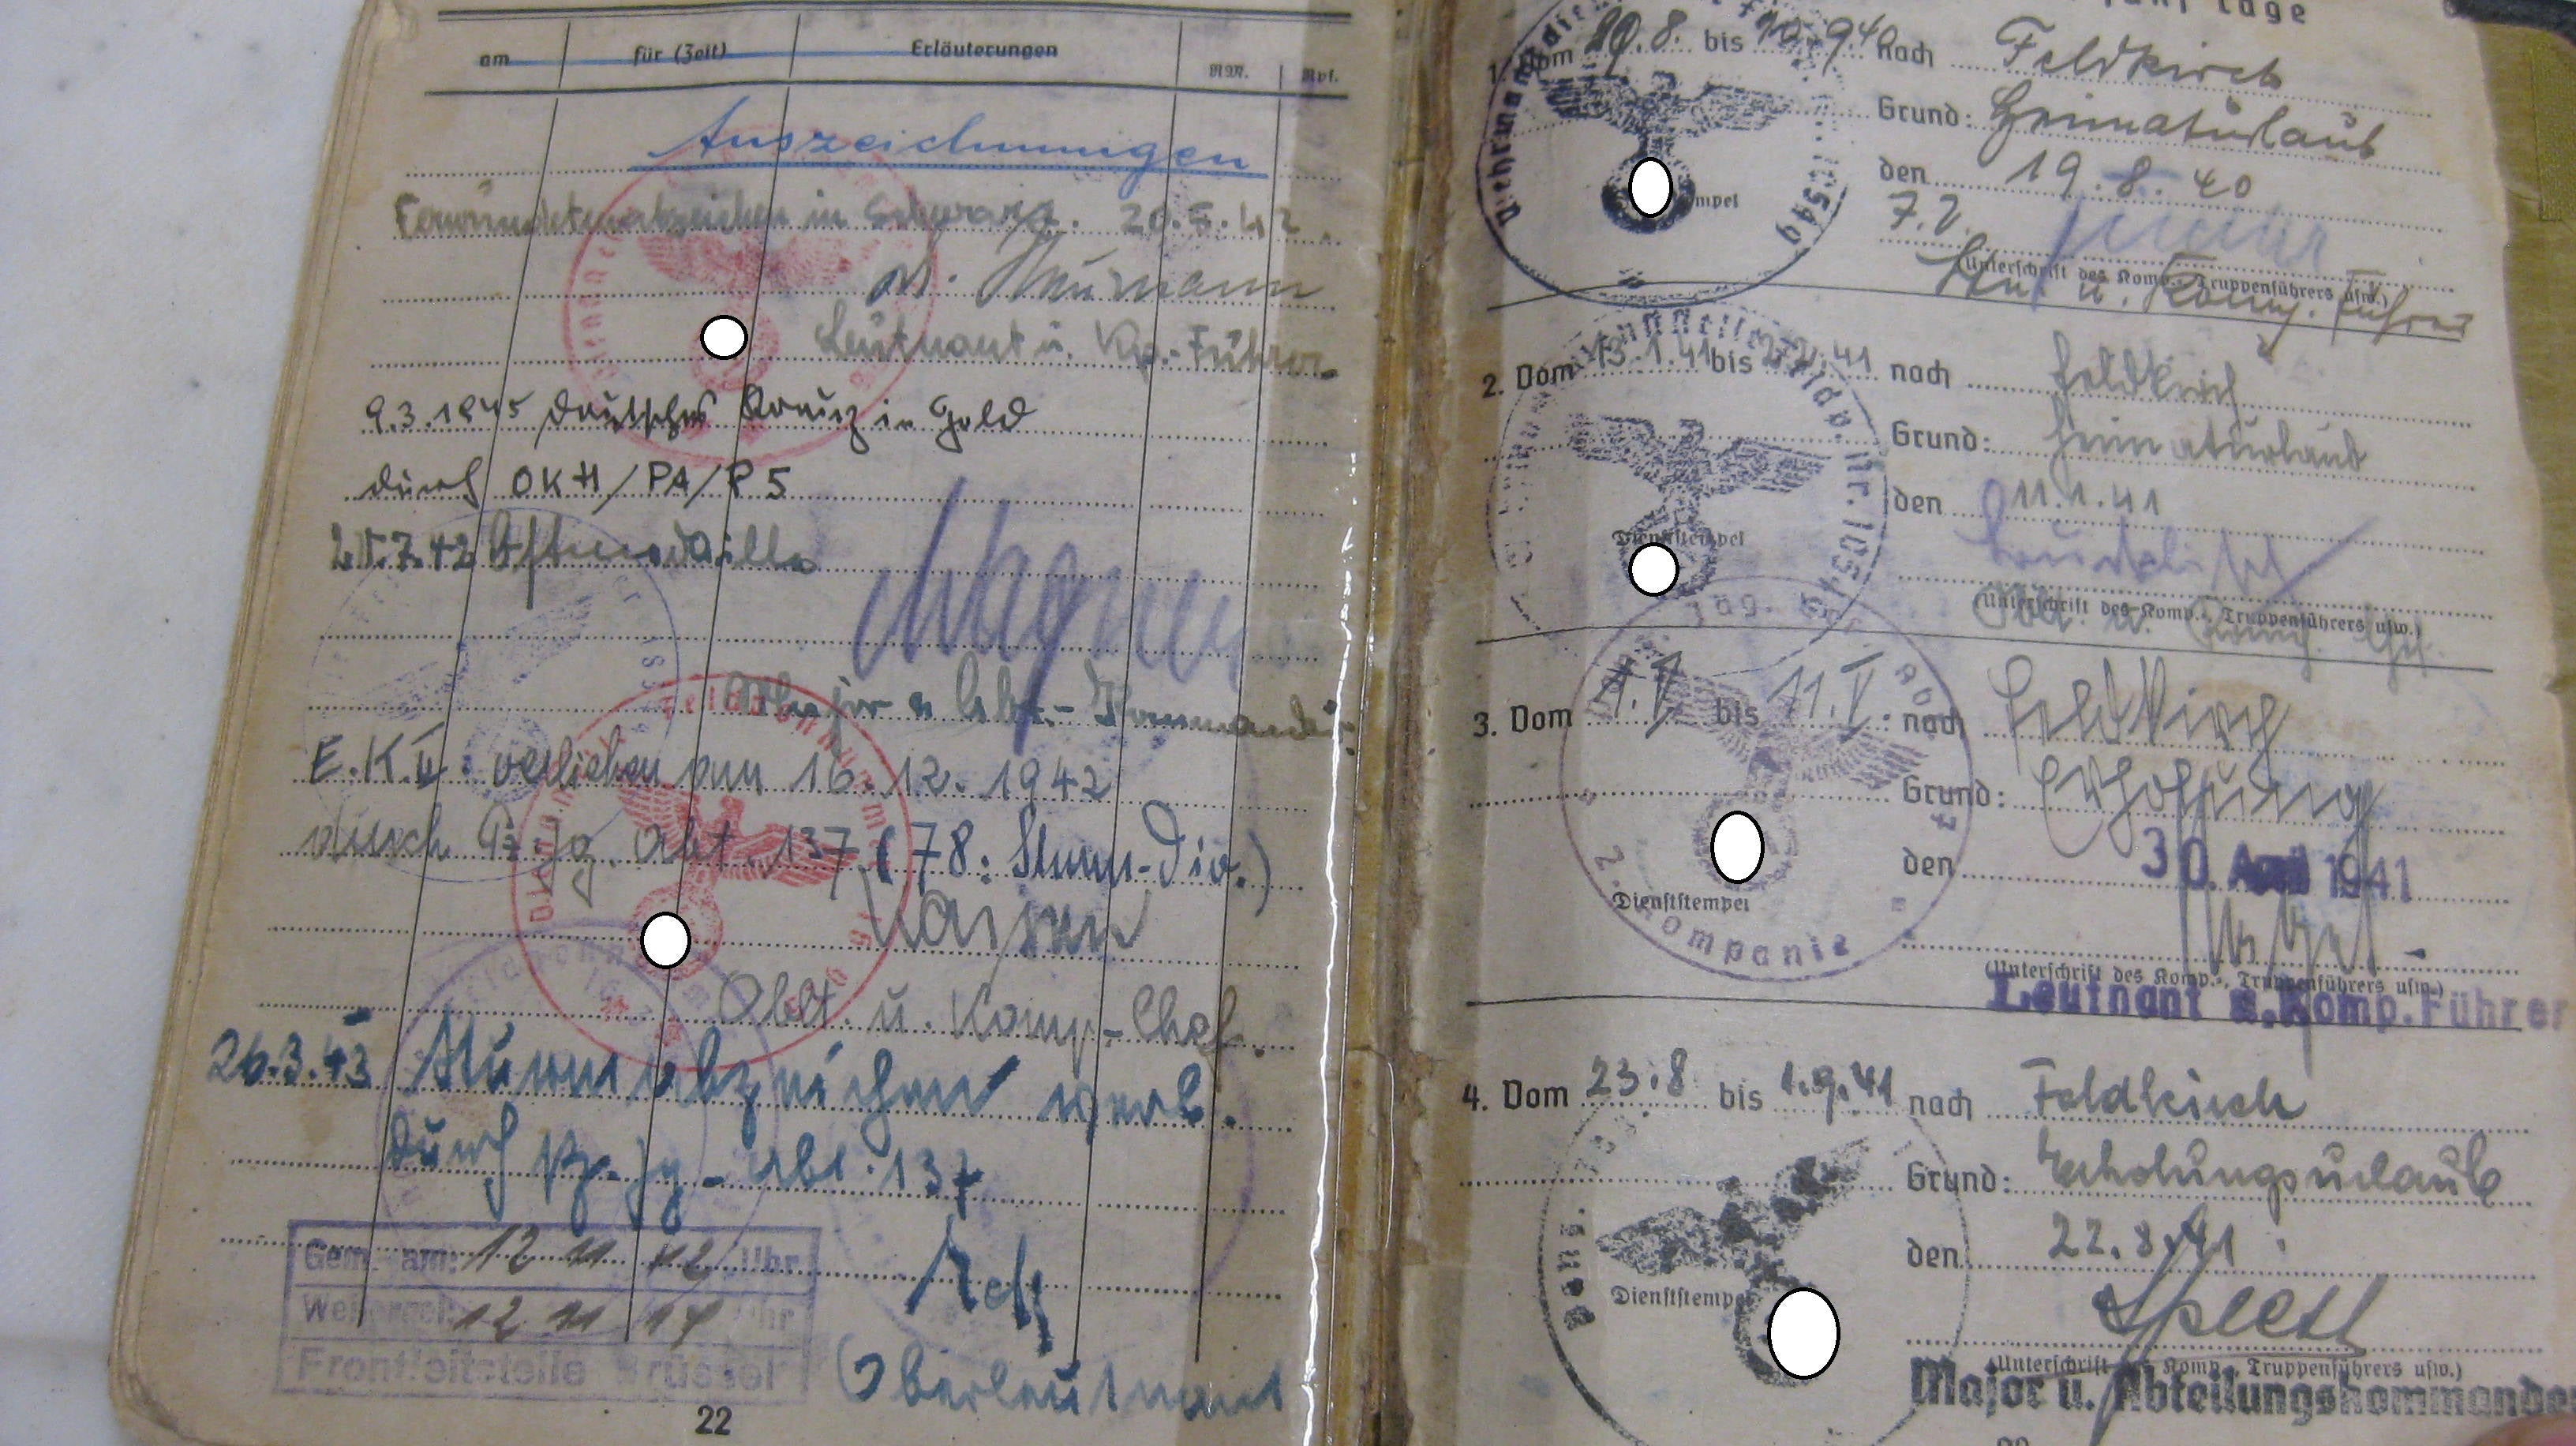 am für (Zeit) Erläuterungen RM. Rpf.
Auszeichnungen
Verwundetenabzeichen in Schwarz. 20.5.42
Leutnant u. Kp.-Führer
9.3.1945 Deutsches Kreuz in Gold
durch OKH/PA/P5
25.7.42 Ostmedaille
Major u. Abt.-Kommandeur
E.K.II. verliehen am 16.12.1942
durch Pz. Jg. Abt. 137 (78. Sturm-Div.)
Oblt. u. Komp.-Chef.
26.3.43 Sturmabzeichen verl.
durch Pz-Jg-Abt. 137
Oberleutnant
Gem. am: 12 11 12 Uhr
Weitergel. 12 11 14 Uhr
Frontleitstelle Brüssel
22
fünf Tage
1. Vom 20.8. bis 10.9.40 nach Feldkirch
Grund: Heimaturlaub
den 19.8.40
(Unterschrift des Komp.-, Truppenführers usw.)
Lt. u. Komp. Führer
2. Vom 13.1.41 bis 2.2.41 nach Feldkirch
Grund: Heimaturlaub
den 11.1.41
Dienststempel
(Unterschrift des Komp.-, Truppenführers usw.)
Oblt. u. Komp. Chef
3. Vom 1.V bis 11.V. nach Feldkirch
Grund: Erholung
den 30. April 1941
Dienststempel
2. Kompanie
(Unterschrift des Komp.-, Truppenführers usw.)
Leutnant u. Komp. Führer
4. Vom 23.8 bis 1.9.41 nach Feldkirch
Grund: Erholungsurlaub
den 22.8.41
Dienststempel
(Unterschrift des Komp.-, Truppenführers usw.)
Major u. Abteilungskommandeur